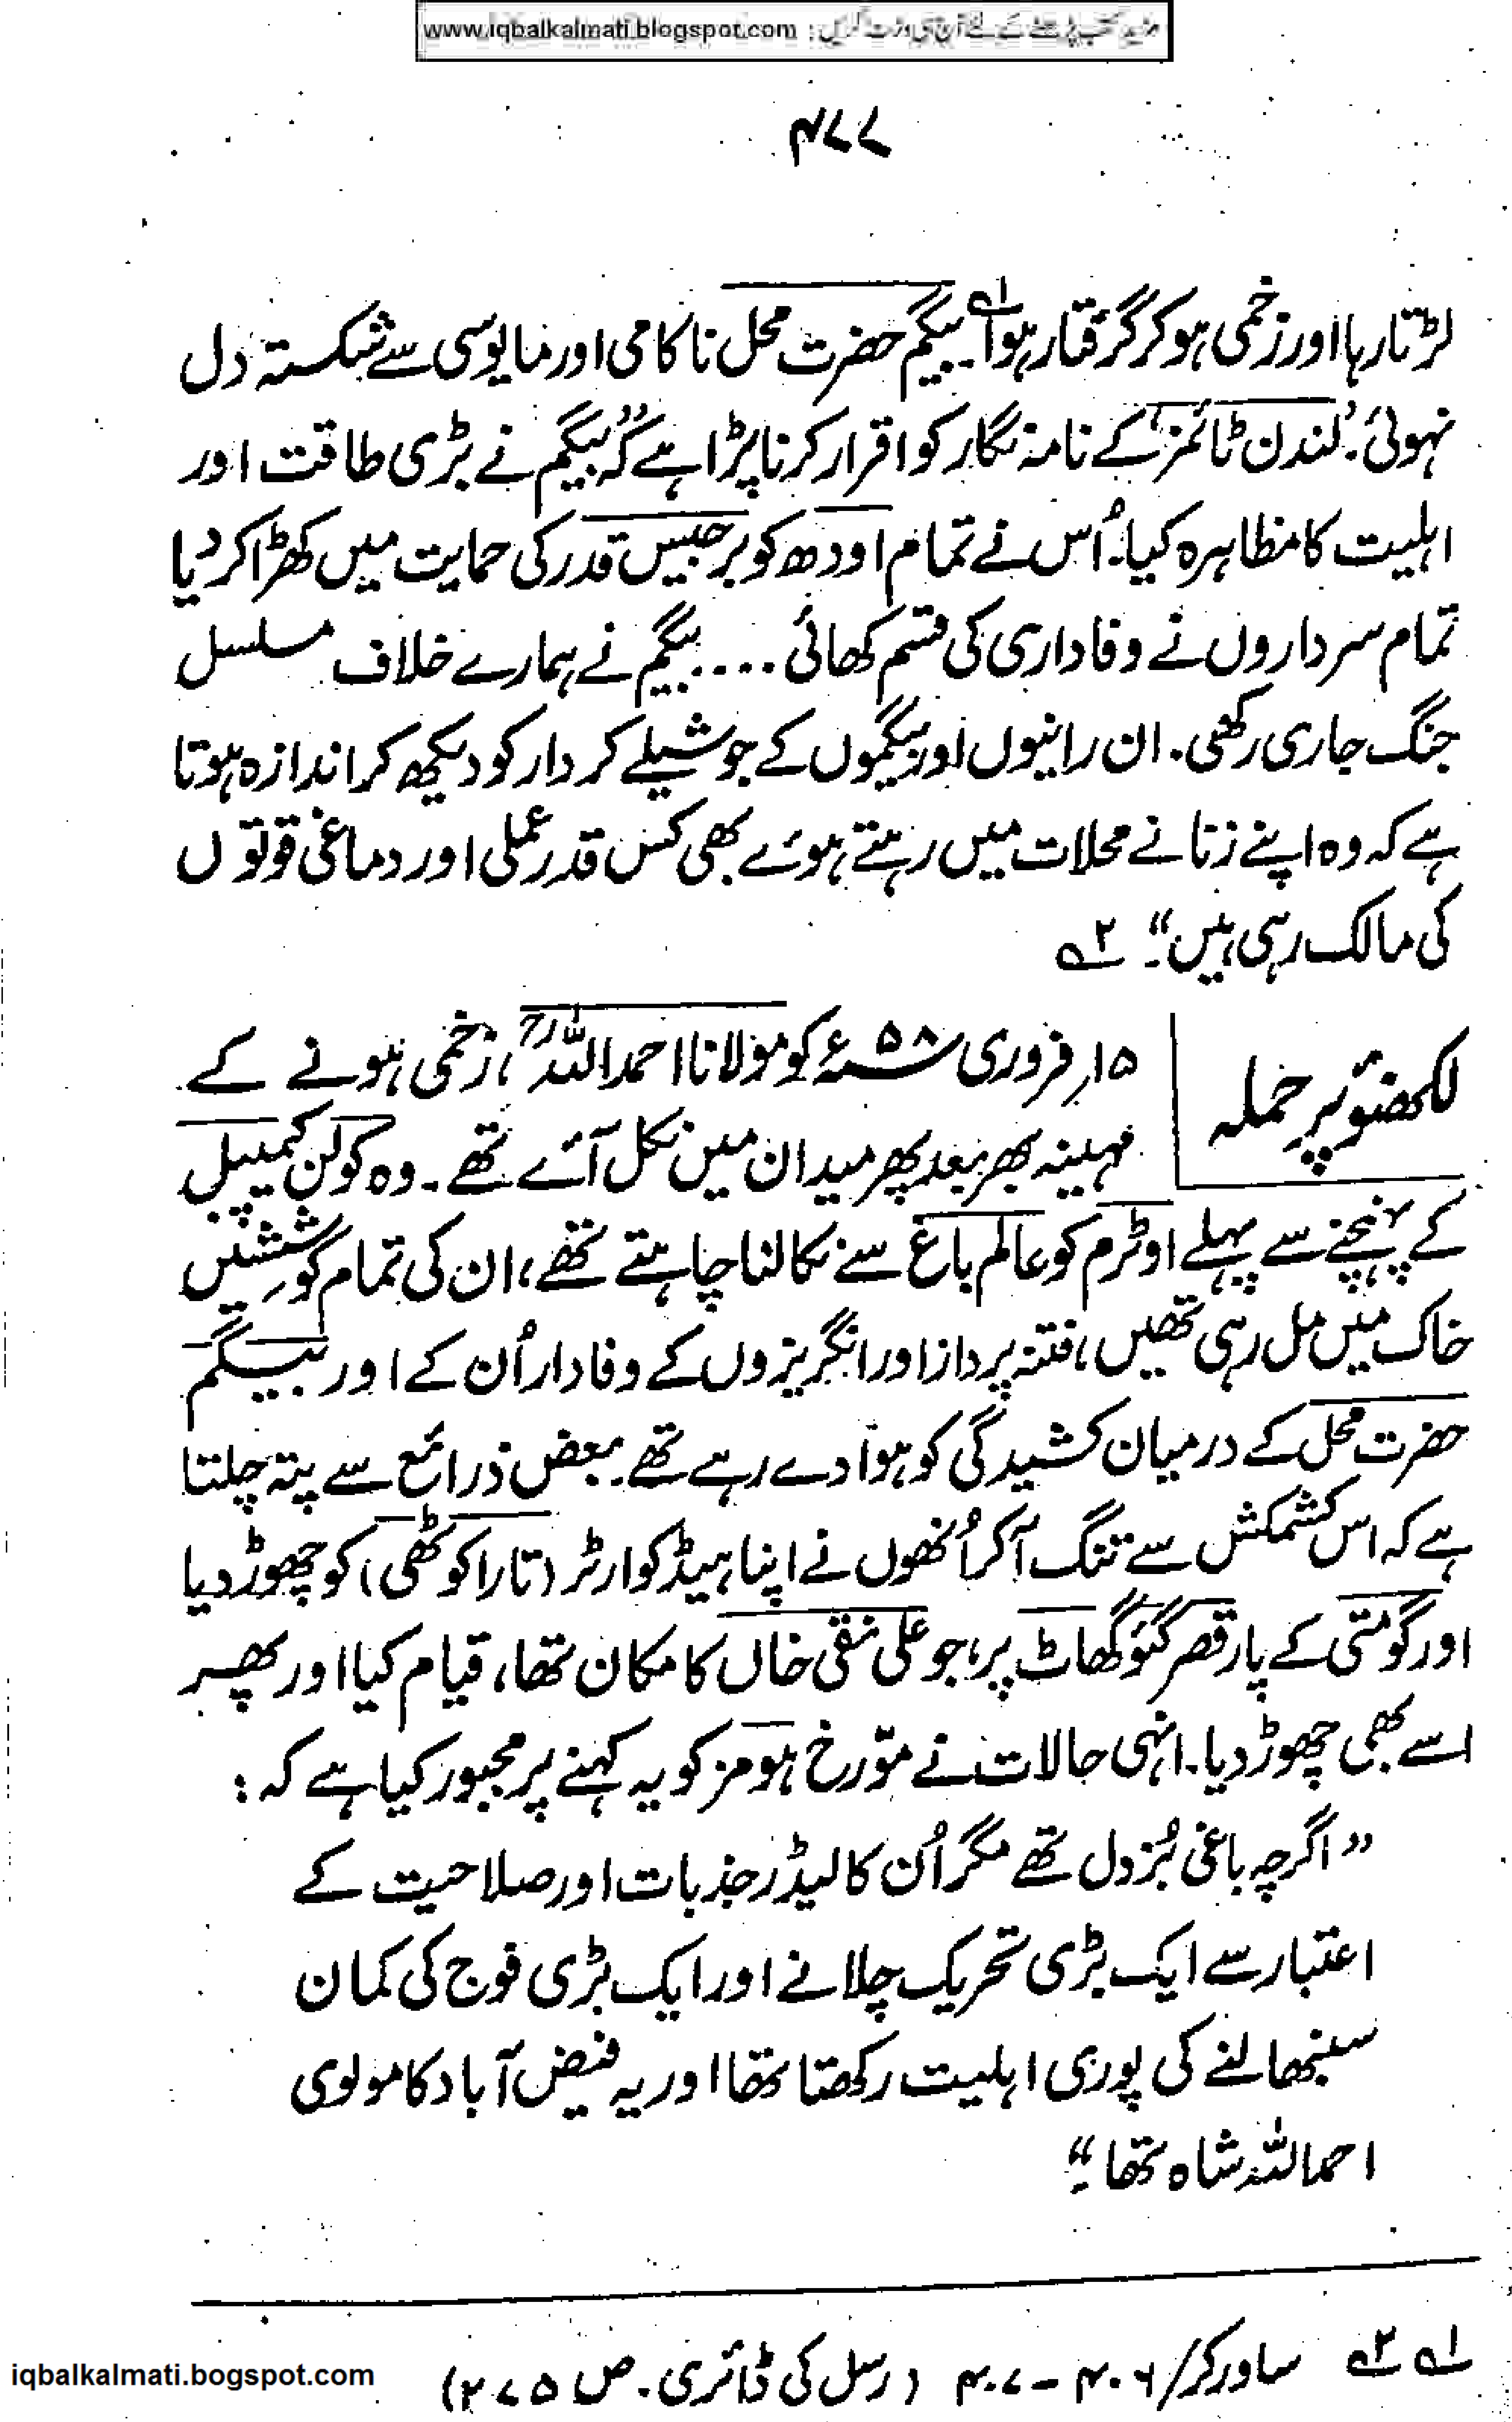 مزید کتب پڑھنے کے لئے آج ہی وزٹ کریں : www.iqbalkalmati.blogspot.com
۴۷۷
لڑتا رہا اور زخمی ہو کر گرفتار ہوا۔ ؂۱ بیگم حضرت محل ناکامی اور مایوسی سے شکستہ دل
نہوئی۔ ’لندن ٹائمز‘ کے نامہ نگار کو اقرار کرنا پڑا ہے کہ ”بیگم نے بڑی طاقت اور
اہلیت کا مظاہرہ کیا۔ اُس نے تمام اودھ کو برجیس قدر کی حمایت میں کھڑا کر دیا
تمام سرداروں نے وفاداری کی قسم کھائی .... بیگم نے ہمارے خلاف مسلسل
جنگ جاری رکھی۔ ان رانیوں اور بیگموں کے جوشیلے کردار کو دیکھ کر اندازہ ہوتا
ہے کہ وہ اپنے زنانے محلات میں رہتے ہوئے بھی کس قدر عملی اور دماغی قوتوں
کی مالک رہی ہیں“۔ ؂۲
لکھنؤ پر حملہ
۱۵ر فروری ۵۸ء کو مولانا احمد اللہؒ، زخمی ہونے کے
مہینہ بھر بعد پھر میدان میں نکل آئے تھے۔ وہ کولن کیمپبل
کے پہنچنے سے پہلے اوٹرم کو عالم باغ سے نکالنا چاہتے تھے، ان کی تمام کوششیں
خاک میں مل رہی تھیں، فتنہ پرداز اور انگریزوں کے وفادار اُن کے اور بیگم
حضرت محل کے درمیان کشیدگی کو ہوا دے رہے تھے۔ بعض ذرائع سے پتہ چلتا
ہے کہ اس کشمکش سے تنگ آکر اُنھوں نے اپنا ہیڈ کوارٹر (تارا کوٹھی) کو چھوڑ دیا
اور گومتی کے پار قصر گئو گھاٹ پر، جو علی نقی خاں کا مکان تھا، قیام کیا اور پھر
اسے بھی چھوڑ دیا۔ انہی حالات نے مؤرخ ہومز کو یہ کہنے پر مجبور کیا ہے کہ :
”اگرچہ باغی بُزدل تھے مگر اُن کا لیڈر جذبات اور صلاحیت کے
اعتبار سے ایک بڑی تحریک چلانے اور ایک بڑی فوج کی کمان
سنبھالنے کی پوری اہلیت رکھتا تھا اور یہ فیض آباد کا مولوی
احمداللہ شاہ تھا“۔
؂۱ ؂۲ ساورکر/ ۴۰۶ - ۴۰۷ (رسل کی ڈائری۔ ص ۲۷۵)
iqbalkalmati.bogspot.com